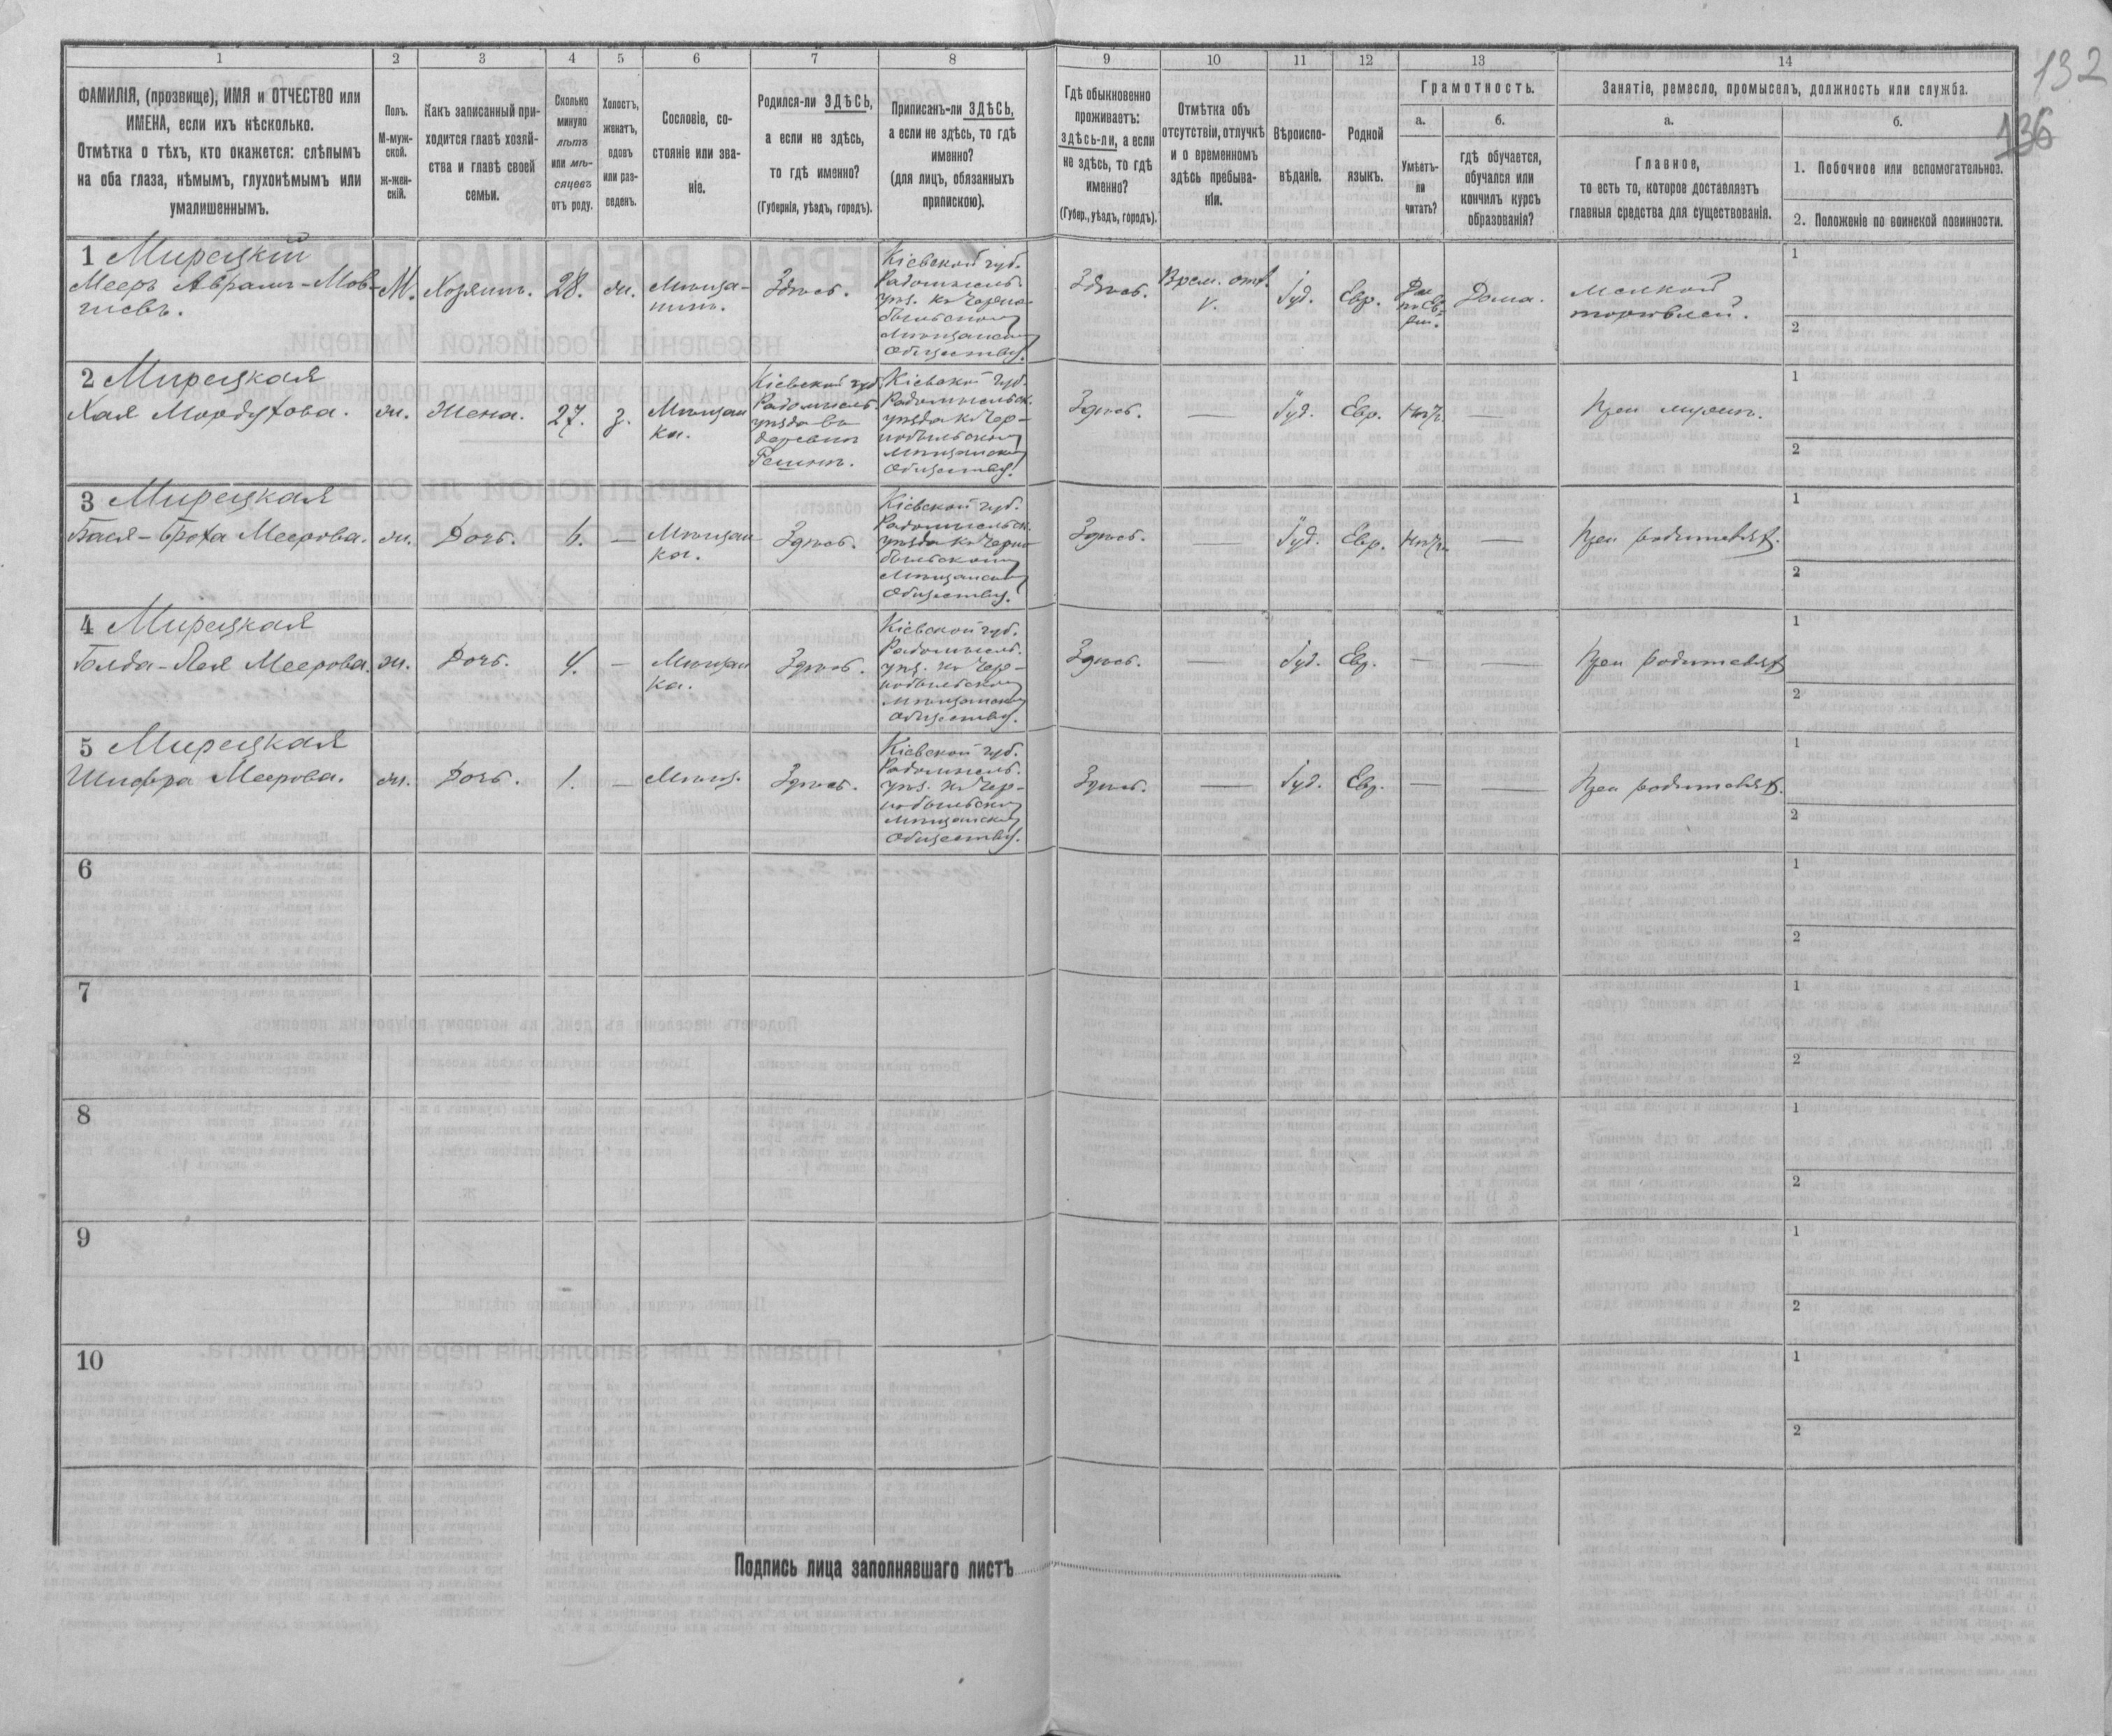 132
136
1 2 3 4 5 6 7 8 9 10 11 12 13 14
ФАМИЛІЯ, (прозвище), ИМЯ и ОТЧЕСТВО или
ИМЕНА, если ихъ нѣсколько.
Отмѣтка о тѣхъ, кто окажется: слѣпымъ
на оба глаза, нѣмымъ, глухонѣмымъ или
умалишеннымъ.
Полъ.
М-муж-
ской.
ж-жен-
скій.
Какъ записанный при-
ходится главѣ хозяй-
ства и главѣ своей
семьи.
Сколько
минуло
лѣтъ
или мѣ-
сяцевъ
отъ роду.
Холостъ,
женатъ,
вдовъ
или раз-
веденъ.
Сословіе, со-
стояніе или зва-
ніе.
Родился-ли ЗДѢСЬ,
а если не здѣсь,
то гдѣ именно?
(Губернія, уѣздъ, городъ).
Приписанъ-ли ЗДѢСЬ,
а если не здѣсь, то гдѣ
именно?
(для лицъ, обязанныхъ
припискою).
Гдѣ обыкновенно
проживаетъ:
ЗДѢСЬ-ЛИ, а если
не здѣсь, то гдѣ
именно?
(Губер., уѣздъ, городъ).
Отмѣтка объ
отсутствіи, отлучкѣ
и о временномъ
здѣсь пребыва-
ніи.
Вѣроиспо-
вѣданіе.
Родной
языкъ.
Грамотность.
а.
Умѣетъ-
ли
читать?
б.
гдѣ обучается,
обучался или
кончилъ курсъ
образованія?
Занятіе, ремесло, промыселъ, должность или служба.
а.
Главное,
то есть то, которое доставляетъ
главныя средства для существованія.
б.
1. Побочное или вспомогательное.
2. Положеніе по воинской повинности.
1 Мирецкій
Мееръ Аврамъ-Мов-
шевъ.
М.
Хозяинъ.
28.
ж.
Мѣща-
нинъ.
Здѣсь.
Кіевской губ.
Радомысль.
уѣз. къ Черно-
быльскому
мѣщанскому
обществу.
Здѣсь.
Врем. отл.
V.
Іуд.
Евр.
Дома.
мелкой
торговлей.
1
2
2 Мирецкая
Хая Мордухова.
ж.
Жена.
27.
з.
Мѣщан
ка.
Кіевской губ.
Радомысль
уѣзда въ
деревнѣ
Кіевской губ.
Радомысльск.
уѣзда къ Чер-
нобыльскому
мѣщанскому
обществу.
Здѣсь.
—
Іуд.
Евр.
Нѣтъ.
—
При мужѣ.
1
2
3 Мирецкая
Бася-Броха Меерова.
ж.
Дочь.
6.
—
Мѣщан
ка.
Здѣсь.
Кіевской губ.
Радомысльск.
уѣзда къ Черно
быльскому
мѣщанскому
обществу.
Здѣсь.
—
Іуд.
Евр.
Нѣтъ.
—
При родителях.
1
2
4 Мирецкая
Голда-Лея Меерова.
ж.
Дочь.
4.
—
Мѣщан
ка.
Здѣсь.
Кіевской губ.
Радомысль.
уѣз. къ Чер-
нобыльскому
мѣщанскому
обществу.
Здѣсь.
—
Іуд.
Евр.
—
—
При родителях
1
2
5 Мирецкая
Шифра Меерова.
ж.
Дочь.
1.
—
Мѣщ.
Здѣсь.
Кіевской губ.
Радомысль.
уѣз. къ Чер-
нобыльскому
мѣщанскому
обществу.
Здѣсь.
—
Іуд.
Евр.
—
—
При родителях.
1
2
6
1
2
7
1
2
8
1
2
9
1
2
10
1
2
Подпись лица заполнявшаго листъ